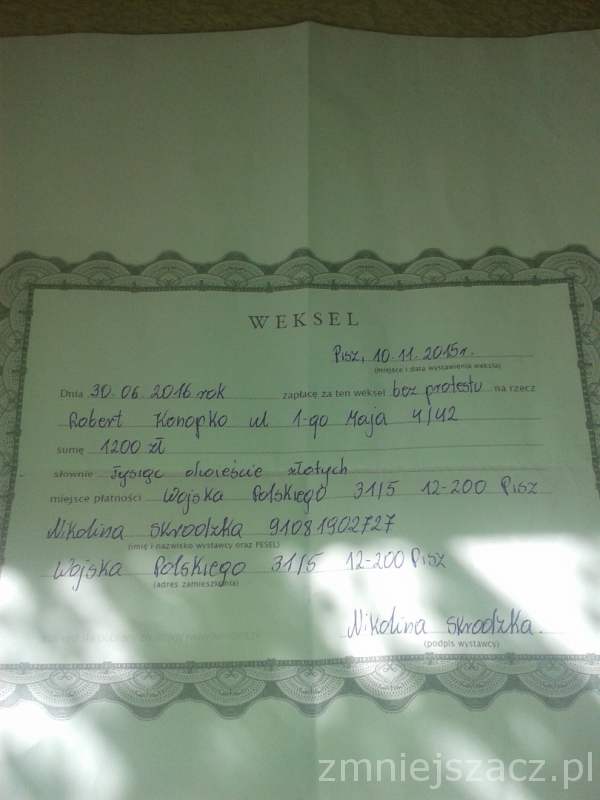 WEKSEL
Pisz, 10.11.2015r.
(miejsce i data wystawienia weksla)
Dnia 30.06.2016 rok zapłacę za ten weksel bez protestu na rzecz
Robert Konopko ul 1-go Maja 4/42
sumę 1200 zł
słownie tysiąc dwieście złotych
miejsce płatności Wojska Polskiego 31/5 12-200 Pisz
Nikolina Skrodzka 91081902727
(imię i nazwisko wystawcy oraz PESEL)
Wojska Polskiego 31/5 12-200 Pisz
(adres zamieszkania)
Nikolina Skrodzka
(podpis wystawcy)
zmniejszacz.pl